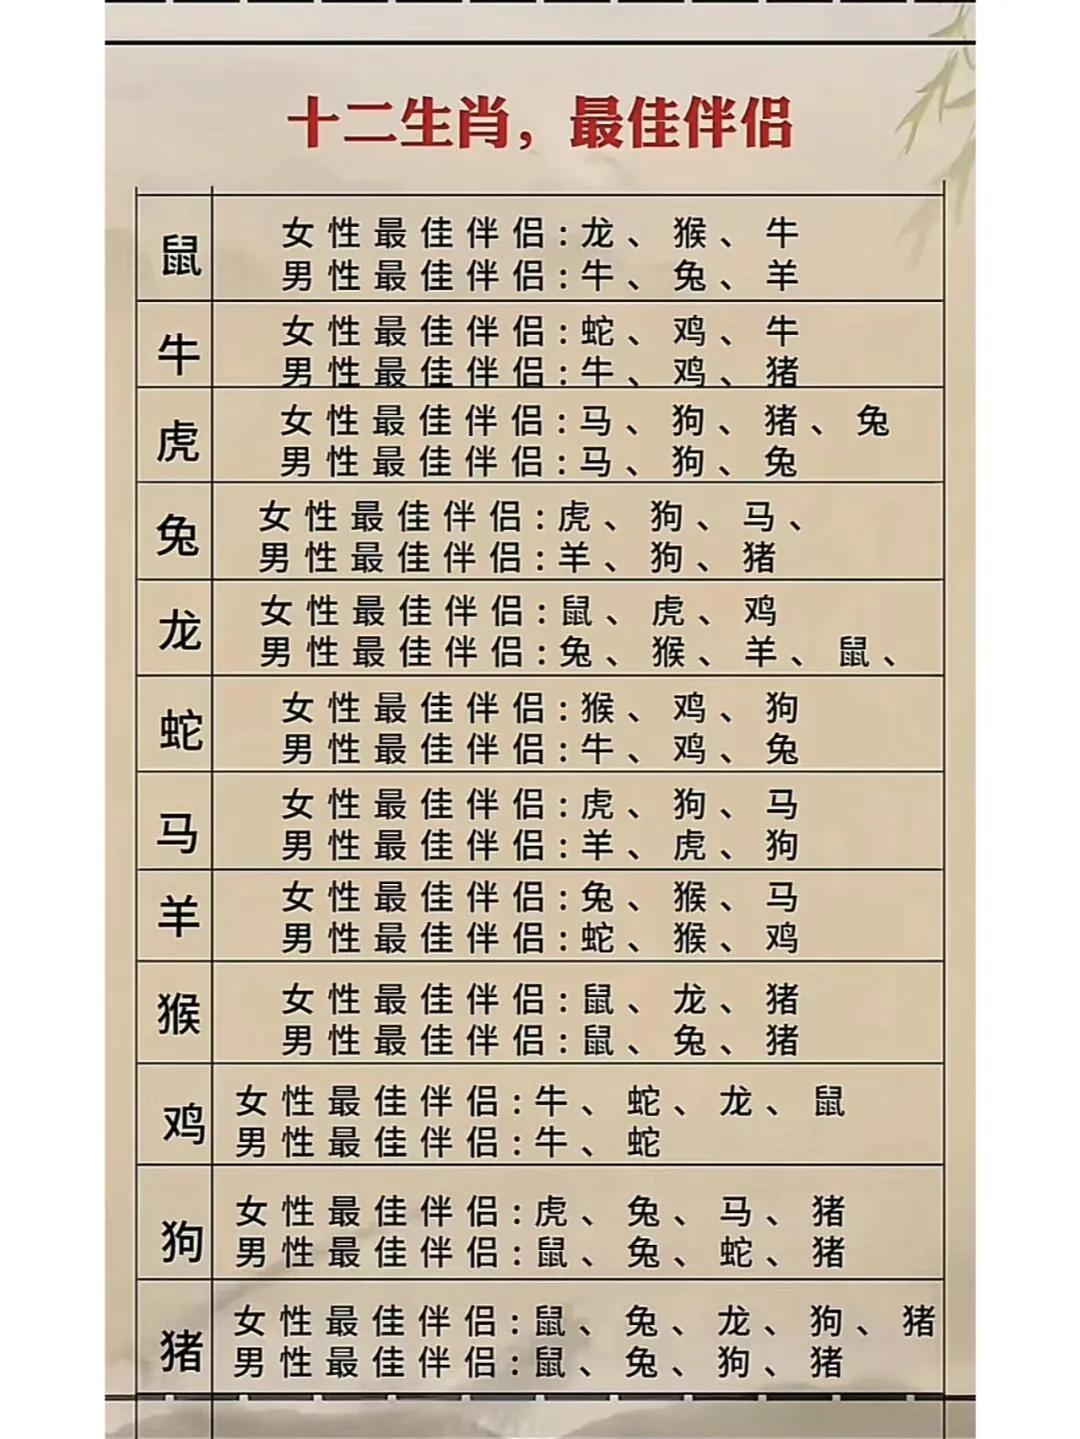 十二生肖，最佳伴侣
鼠
女性最佳伴侣:龙、猴、牛
男性最佳伴侣:牛、兔、羊
牛
女性最佳伴侣:蛇、鸡、牛
男性最佳伴侣:牛、鸡、猪
虎
女性最佳伴侣:马、狗、猪、兔
男性最佳伴侣:马、狗、兔
兔
女性最佳伴侣:虎、狗、马、
男性最佳伴侣:羊、狗、猪
龙
女性最佳伴侣:鼠、虎、鸡
男性最佳伴侣:兔、猴、羊、鼠、
蛇
女性最佳伴侣:猴、鸡、狗
男性最佳伴侣:牛、鸡、兔
马
女性最佳伴侣:虎、狗、马
男性最佳伴侣:羊、虎、狗
羊
女性最佳伴侣:兔、猴、马
男性最佳伴侣:蛇、猴、鸡
猴
女性最佳伴侣:鼠、龙、猪
男性最佳伴侣:鼠、兔、猪
鸡
女性最佳伴侣:牛、蛇、龙、鼠
男性最佳伴侣:牛、蛇
狗
女性最佳伴侣:虎、兔、马、猪
男性最佳伴侣:鼠、兔、蛇、猪
猪
女性最佳伴侣:鼠、兔、龙、狗、猪
男性最佳伴侣:鼠、兔、狗、猪